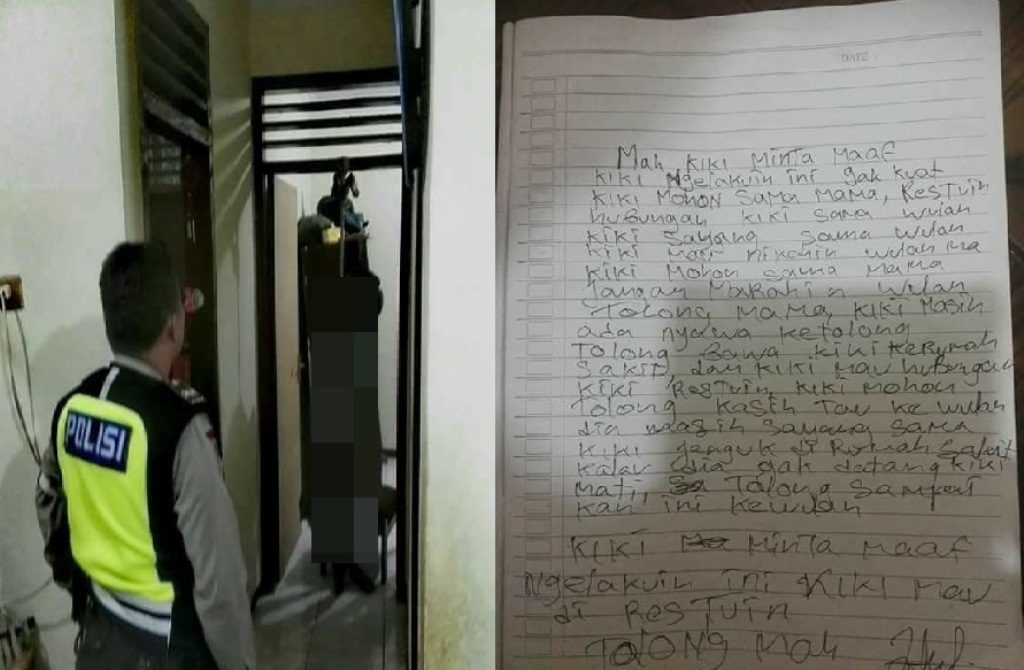 POLISI
DATE:
Mah, kiki Minta Maaf
kiki Ngelakuin ini gak kuat
kiki Mohon sama Mama, Restuin
hubungan kiki sama wulan
kiki sayang sama wulan
kiki wulan Ma
kiki Mohon sama Mama
Jangan Marahin wulan
Tolong Mama, kiki Masih
ada nyawa ketolong
Tolong Bawa kiki kerumah
sakit, dan kiki Mau hubungan
kiki Restuin, kiki Mohon
Tolong kasih Tau ke wulan
dia Masih sayang sama
kiki Jenguk di Rumah Sakit
kalau dia gak datang kiki
Mati, Tolong Sampai
kan ini kewulan
kiki Minta Maaf
Ngelakuin ini kiki Mau
di Restuin
Tolong Mah